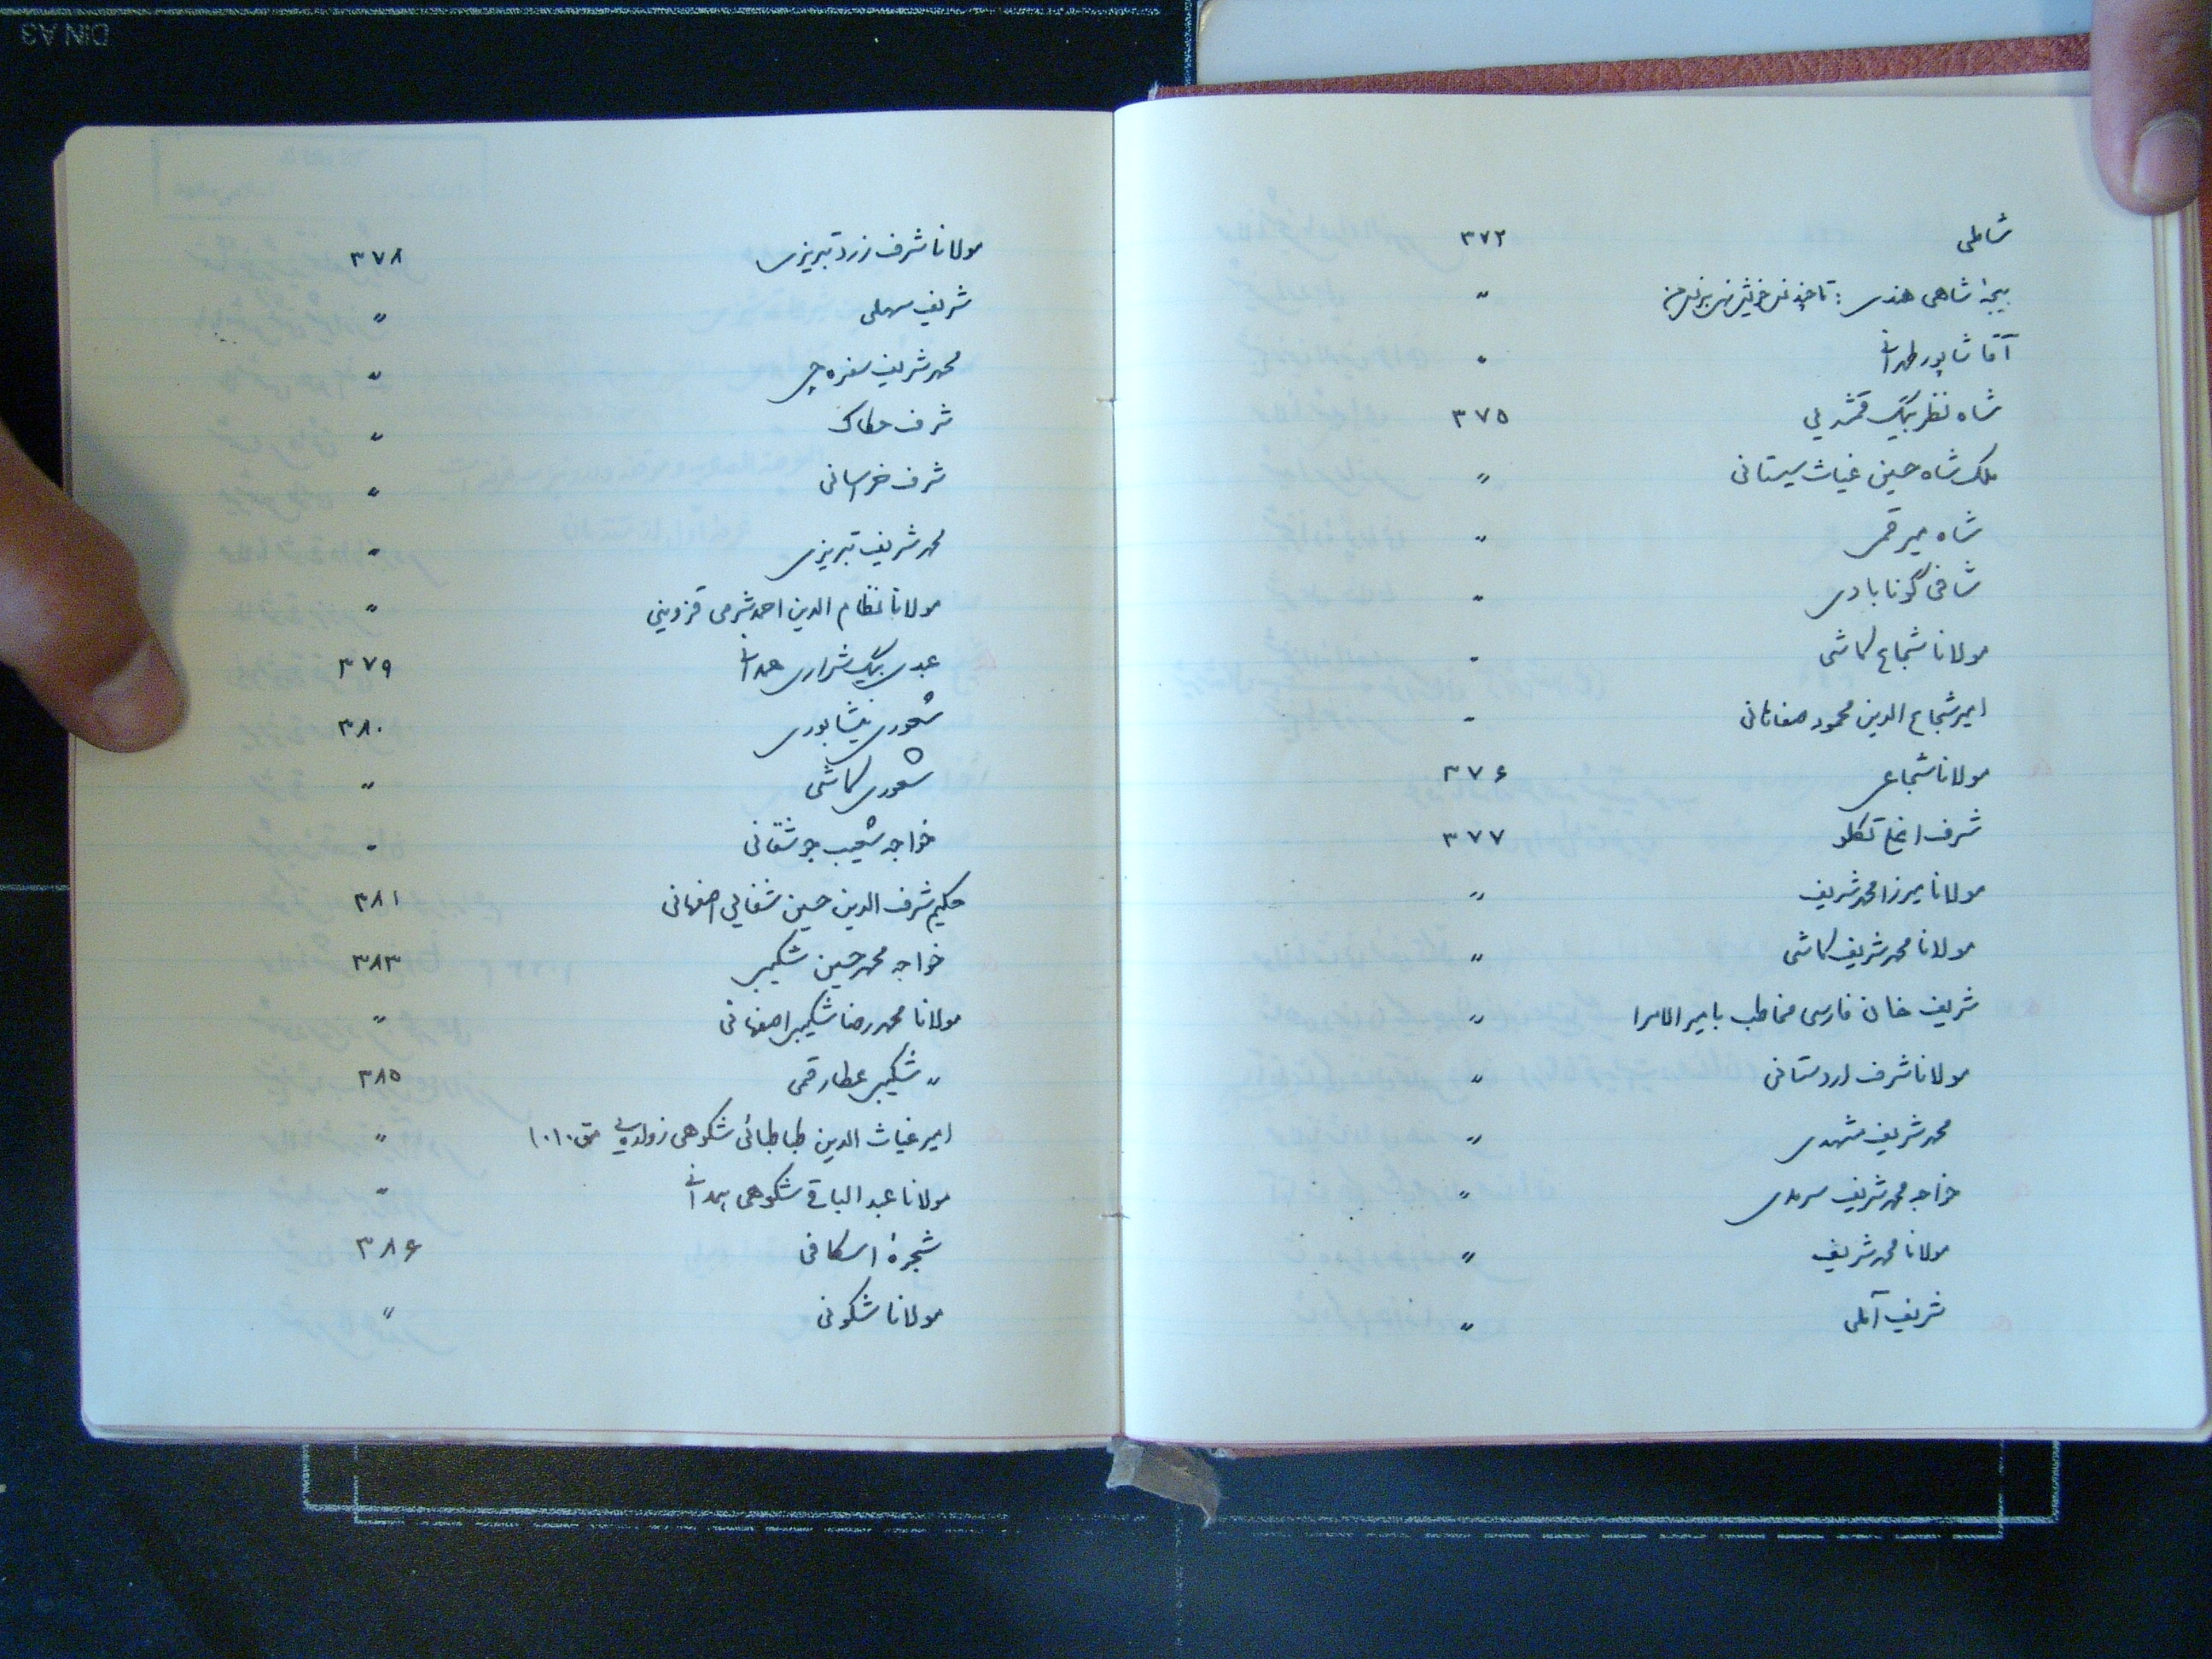 شاملی ۳۷۲
بیجهٔ شاهی هندی : تا چند غم خویش بر من "
آقا شاپور طهرانی "
شاه نظر بیگ قمشه‌یی ۳۷۵
ملک شاه حسین غیاث سیستانی "
شاه میر قمی "
شافی گونابادی "
مولانا شجاع کاشی "
امیر شجاع الدین محمود صفاهانی "
مولانا شجاعی ۳۷۶
شرف اغلی تکلو ۳۷۷
مولانا میرزا محمد شریف "
مولانا محمد شریف کاشی "
شریف خان فارسی مخاطب بامیر الامرا "
مولانا شرف اردستانی "
محمد شریف مشهدی "
خواجه محمد شریف سرمدی "
مولانا محمد شریف "
شریف آملی "
مولانا شرف زرد تبریزی ۳۷۸
شریف سهلی "
محمد شریف سفره چی "
شرف حکاک "
شرف خراسانی "
محمد شریف تبریزی "
مولانا نظام الدین احمد شرمی قزوینی "
عبدی بیگ شراری همدانی ۳۷۹
شعوری نیشابوری ۳۸۰
شعوری کاشی "
خواجه شعیب جوشقانی "
حکیم شرف الدین حسین شفائی اصفهانی ۳۸۱
خواجه محمد حسین شکیبی ۳۸۳
مولانا محمد رضا شکیبی اصفهانی "
" شکیبی عطار قمی ۳۸۵
امیر غیاث الدین طباطبائی شکوهی زواره‌یی مق ۱۰۱۰ "
مولانا عبد الباقی شکوهی همدانی "
شجرهٔ اسکافی ۳۸۶
مولانا شکونی "